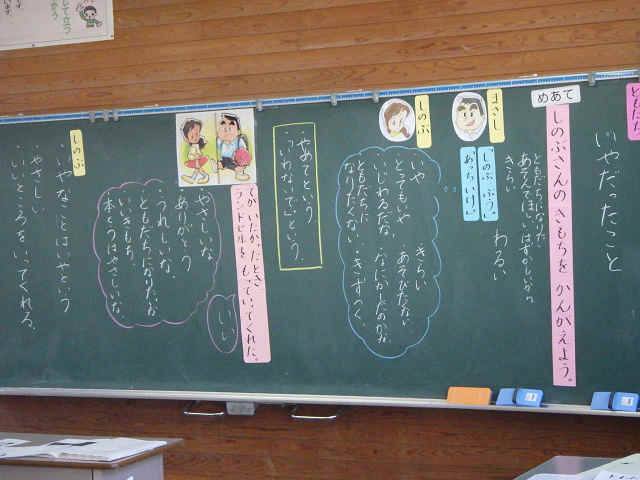 ともだち
いやだったこと
めあて
しのぶさんの きもちを かんがえよう。
ともだちになりたい
あそんでほしい はずかしいから
きらい
わるい
まさし
「しのぶ ぶう。」
「あっちいけ。」
しのぶ
いや
きらい
とてもいや
・あそびたくない
・いじわるだな
・なにかしたのかな
ともだちに
なりたくない
・きずつく
・やめてという
・「いわないで」という
てが いたかったとき
ランドセルを もっていってくれた。
いい
やさしいな
ありがとう
・うれしいな
ともだちになりたいな
いいきもち
本とうはやさしいな
しのぶ
・いやなことはいやという
・やさしい
・いいところをいってくれる